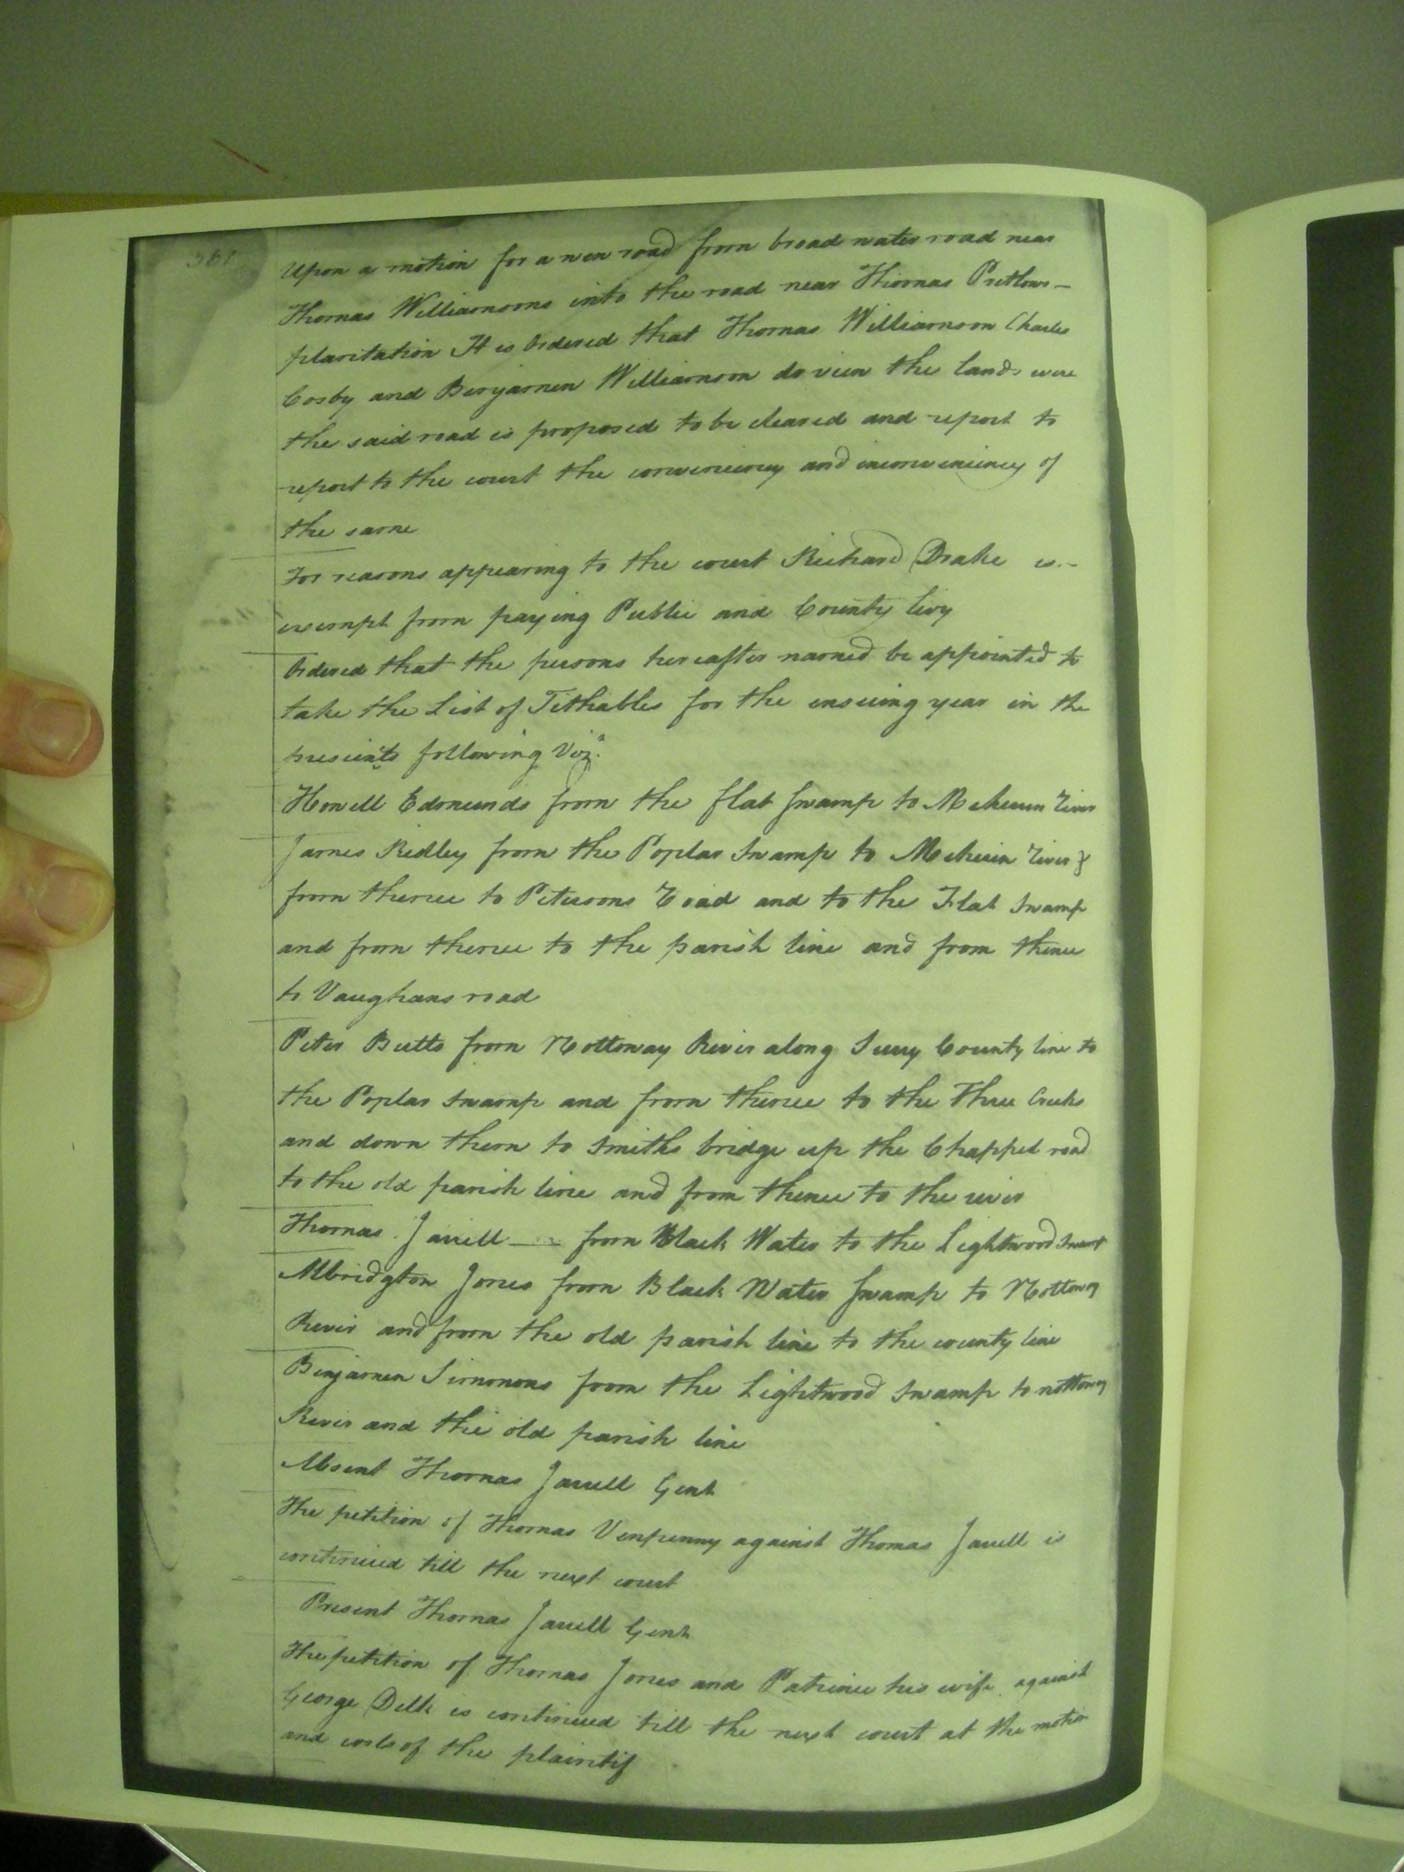 361
Upon a motion for a new road from broad water road near
Thomas Williamsons into the road near Thomas Pretlows
plantation It is Ordered that Thomas Williamson Charles
Cosby and Benjamen Williamson do view the lands were
the said road is proposed to be cleared and report to
report to the court the conveniency and inconveniency of
the same
For reasons appearing to the court Richard Drake is
exempt from paying Public and County levy
Ordered that the persons hereafter named be appointed to
take the List of Tithables for the ensuing year in the
presincts following Viz.
Howell Edmunds from the flat swamp to Meherrin River
James Ridley from the Poplar Swamp to Meherin River &
from thence to Petersons Road and to the Flat Swamp
and from thence to the parish line and from thence
to Vaughans road
Peter Butts from Nottoway River along Surry County line to
the Poplar swamp and from thence to the Three Creeks
and down them to Smiths bridge up the Chappel road
to the old parish line and from thence to the river
Thomas Jarrell — from Black Water to the Lightwood Swamp
Albridgton Jones from Black Water Swamp to Nottoway
River and from the old parish line to the county line
Benjamen Simmons from the Lightwood Swamp to nottoway
River and the old parish line
Absent Thomas Jarrell Gent
The petition of Thomas Venpenny against Thomas Jarrell is
continued till the next court
Present Thomas Jarrell Gent
The petition of Thomas Jones and Patience his wife against
George Delk is continued till the next court at the motion
and costs of the plaintif